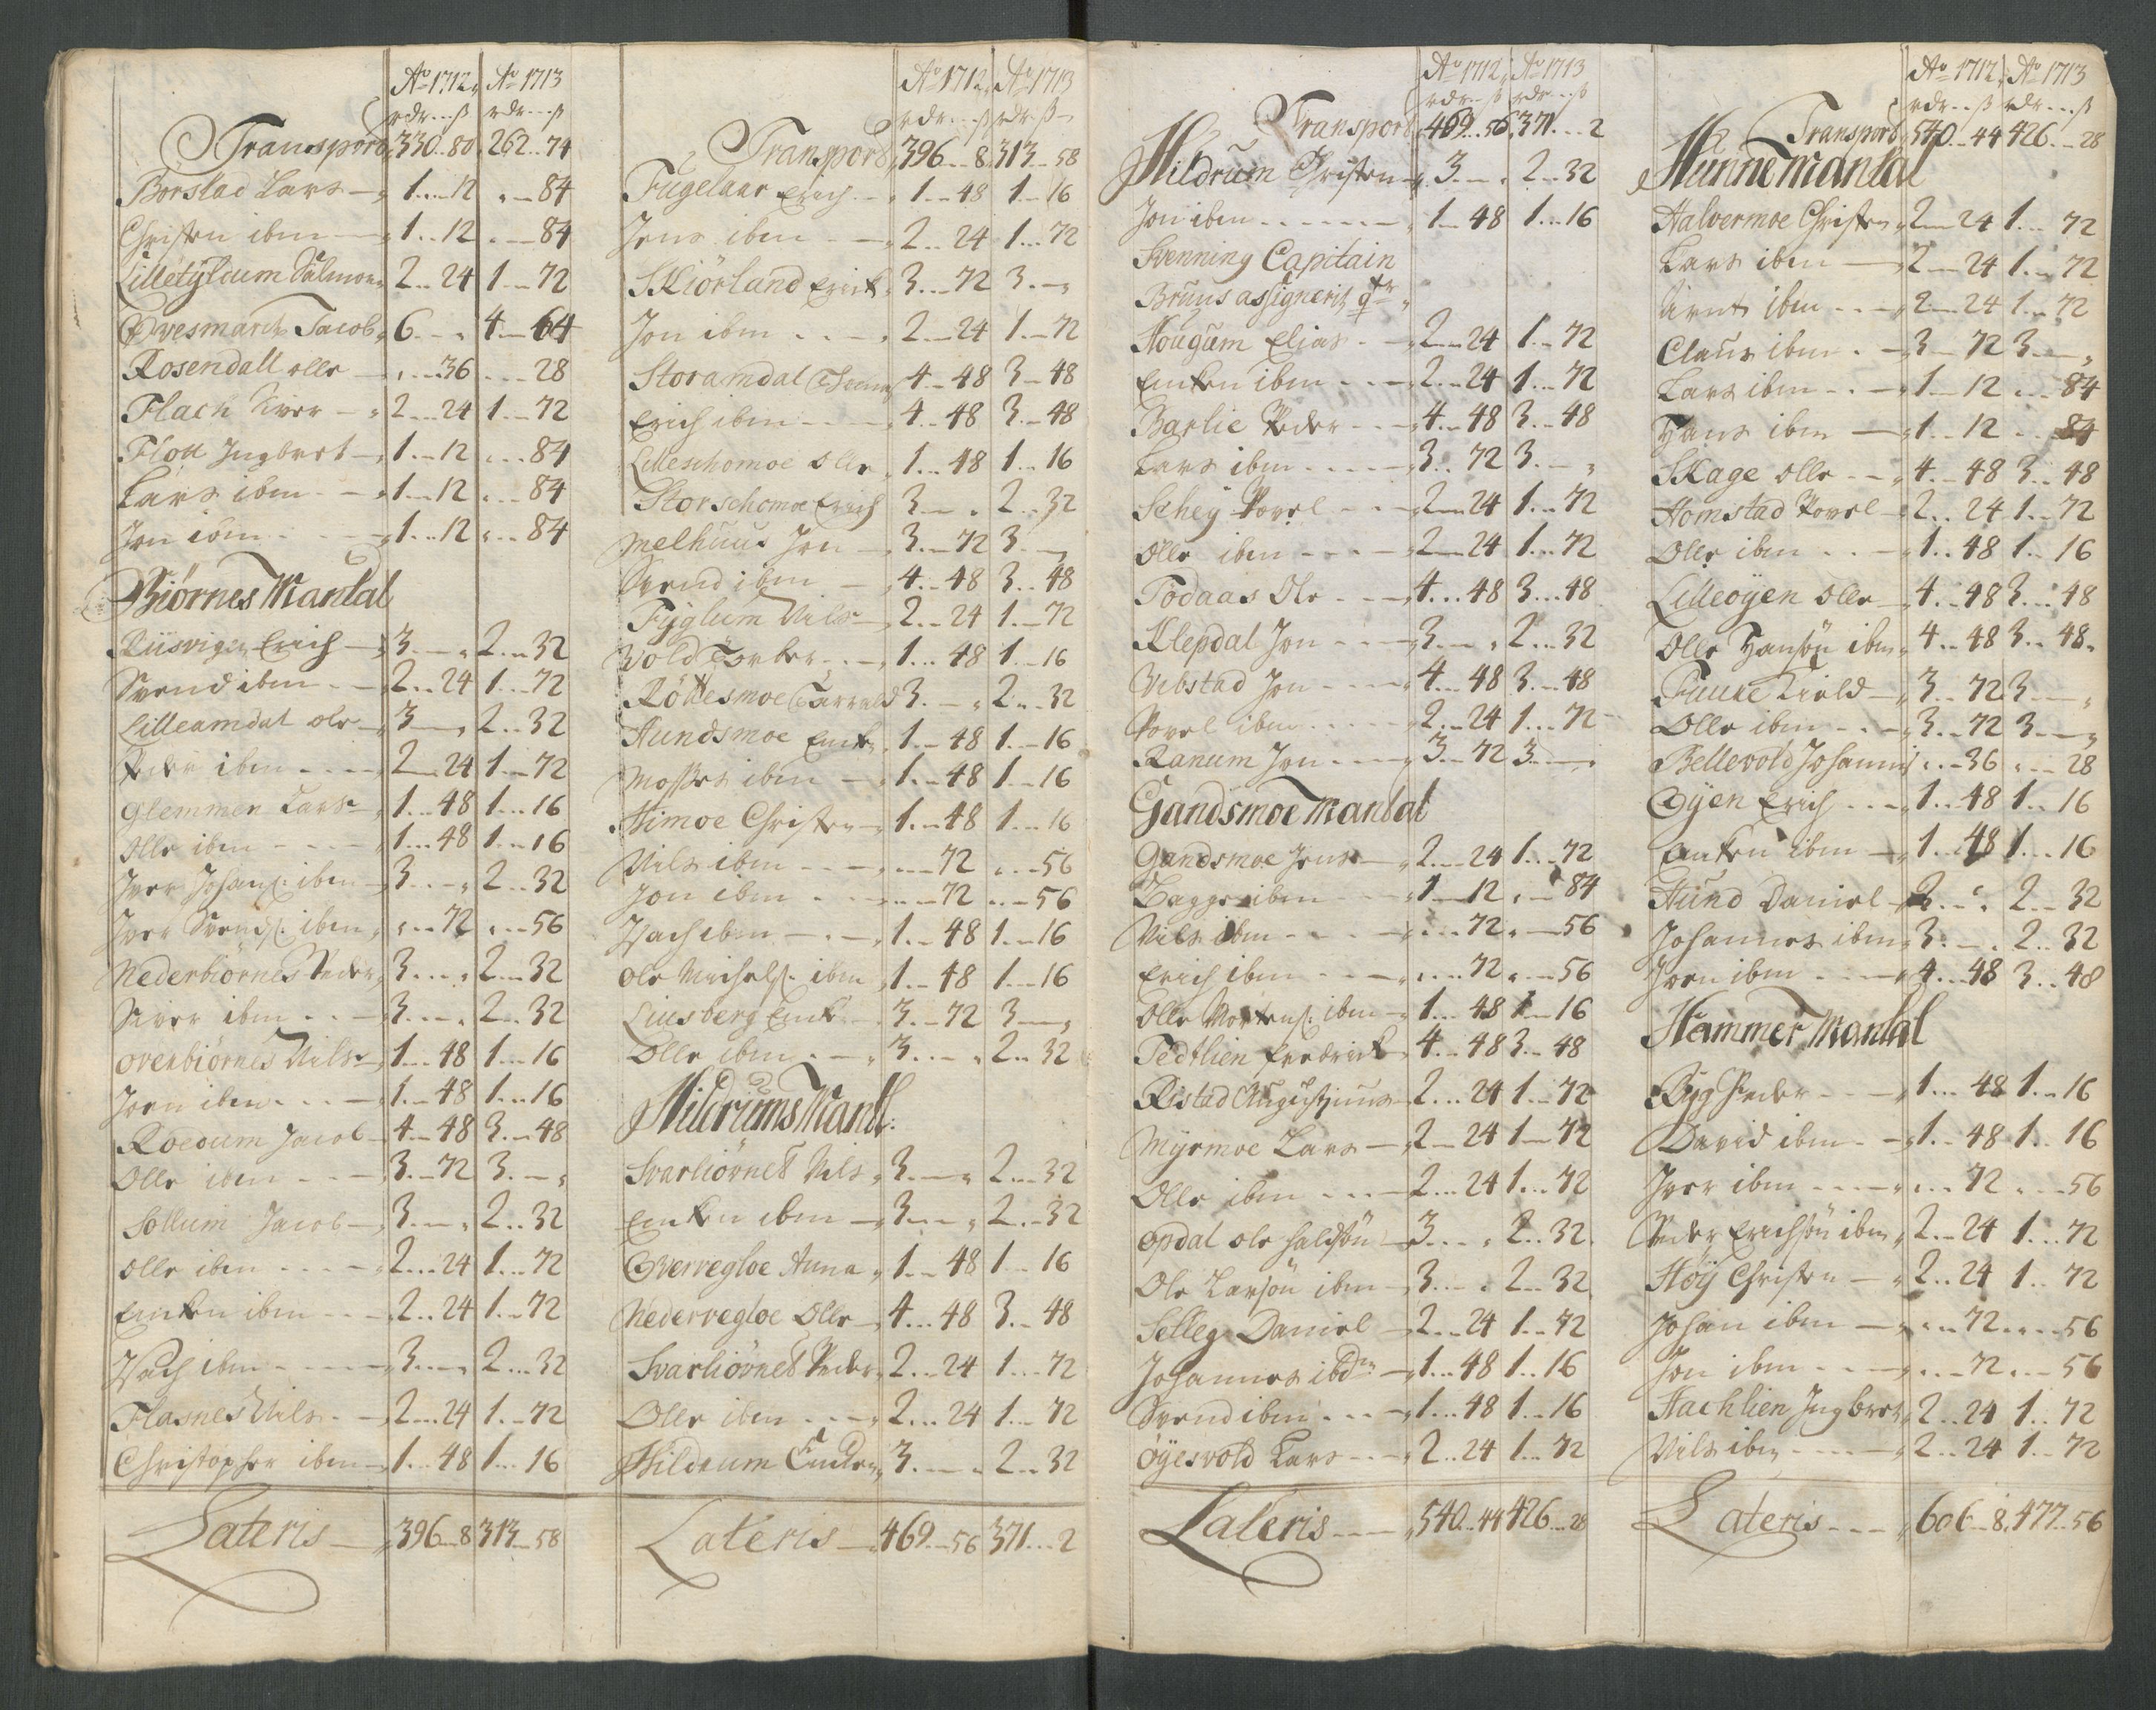 Ao 1712 Ao 1713
rdr...ß rdr...ß
Transport 330..80 262..74
Borstad Lars 1...12 84
Christen ibm 1..12 84
Lilletyldum Salmon 2..24 1...72
Øvesmarck Jacob 6 4..64
Rosendall olle 36 28
Flach Siver 2..24 1...72
Flott Ingbret 1...12 84
Lars ibm 1...12 84
Jon ibm 1...12 84
Biörnes Mantal
Riisvigen Erich 3 2..32
Svend ibm 2..24 1...72
Lilleamdal ole 3 2..32
Peder ibm 2..24 1...72
Glemmen Lars 1...48 1...16
Olle ibm 1...48 1...16
Iver Johans: ibm 3 2..32
Iver Svends: ibm 72 56
Nederbiörnes Peder 3 2..32
Siver ibm 3 2..32
overbiörnes Nils 1...48 1...16
Joen ibm 1...48 1...16
Roedum Jacob 4..48 3..48
Olle ibm 3..72 3
Sollum Jacob 3 2..32
Olle ibm 2..24 1...72
Encken ibm 2..24 1...72
Isach ibm 3 2..32
Flasnes Nils 2..24 1...72
Christopher ibm 1...48 1...16
Lateris 396..8 313..58
Ao 1712 Ao 1713
rdr...ß rdr..ß
Transport 396..8 313..58
Fugelaar Erich 1..48 1..16
Jens ibm 2..24 1...72
Skiörland Erick 3..72 3
Jon ibm 2..24 1...72
Storamdal 4..48 3..48
Erich ibm 4..48 3..48
Lilleschomoe Olle 1..48 1..16
Storschomoe Erich 3 2..32
Melhuus Jon 3..72 3
Svend ibm 4..48 3..48
Fyglum Nils 2..24 1..72
Vold Torber 1..48 1..16
Röttesmoe Tarrald 3 2..32
Hundsmoe Enck 1..48 1..16
Mosses ibm 1..48 1..16
Himoe Christen 1..48 1..16
Nils ibm 72 56
Jon ibm 72 56
Isach ibm 1..48 1..16
Ole Michels: ibm 1..48 1..16
Liusberg Enck 3..72 3
Olle ibm 3 2..32
Mildrums Mantl:
Svarliövnet Nils 3 2..32
Encken ibm 3 2..32
Overvegloe Anna 1..48 1..16
Nedervegloe Olle 4..48 3..48
Svarliövnet Peder 2..24 1..72
Olle ibm 2..24 1..72
Mildrum Encken 3 2..32
Lateris 469..56 371..2
Ao 1712 Ao 1713
rdr...ß rdr...ß
Transport 469..56 371...2
Mildrum Christen 3 2..32
Jon ibm 1..48 1...16
Svenning Capitain
Bruus assignerit
Hougum Elias 2..24 1..72
Encken ibm 2..24 1..72
Barlie Peder 4..48 3..48
Lars ibm 3..72 3
Schey Povel 2..24 1..72
Olle ibm 2..24 1..72
Todaas Ole 4..48 3..48
Klepdal Jon 3 2..32
Vibstad Jon 4..48 3..48
Povel ibm 2..24 1..72
Ranum Jon 3..72 3
Gandsmoe Mantal
Gandsmoe Jens 2..24 1..72
Bagge ibm 1..12 84
Nils ibm 72 56
Erich ibm 72 56
Olle Mortens: ibm 1..48 1..16
Tedtlien Fredrick 4..48 3..48
Ristad Augustinus 2..24 1..72
Myrmoe Lars 2..24 1..72
Olle ibm 2..24 1..72
opdal ole 3 2..32
Ole Larsön ibm 3 2..32
Selleg Daniel 2..24 1..72
Johannes ibdm 1..48 1..16
Svend ibm 1..48 1..16
Öyesvold Lars 2..24 1..72
Lateris 540..44 426..28
Ao 1712 Ao 1713
rdr...ß rdr...ß
Transport 540..44 426..28
Hunne Mantal
Halvermoe Christen 2..24 1..72
Lars ibm 2..24 1..72
Arnt ibm 2..24 1..72
Claus ibm 3..72 3
Lars ibm 1..12 84
Hans ibm 1..12 84
Skage Olle 4..48 3..48
Homstad Povel 2..24 1..72
Olle ibm 1..48 1..16
Lilleöyen Olle 4..48 3..48
Olle Hansön ibm 4..48 3..48
Fuure Kield 3..72 3
Olle ibm 3..72 3
Bellevold Johannis 36 28
Öyen Erich 1..48 1..16
Encken ibm 1..48 1..16
Hund Daniel 3 2..32
Johannes ibm 3 2..32
Joen ibm 4..48 3..48
Hammer Mantal
Ryg Peder 1..48 1..16
David ibm 1..48 1..16
Iver ibm 72 56
Peder Erichsön ibm 2..24 1..72
Höy Christen 2..24 1..72
Johan ibm 72 56
Jon ibm 72 56
Hachlien Ingbret 2..24 1..72
Nils ibm 2..24 1..72
Lateris 606..8 477..56